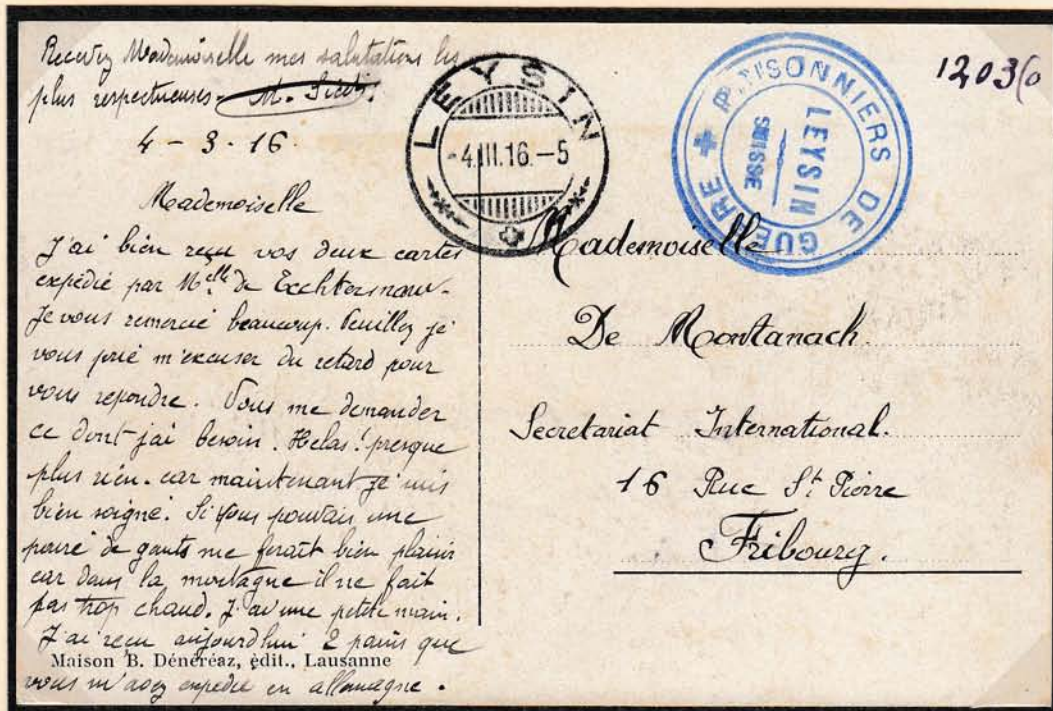 Recevez Mademoiselle mes salutations les
plus respectueuses - M.
4 - 3 - 16.
Mademoiselle
J'ai bien reçu vos deux cartes
expédié par M.elle de
Je vous remercié beaucoup. Veuillez je
vous prié m'excuser du retard pour
vous repondre. Vous me demander
ce dont j'ai besoin. Helas! presque
plus rien. car maintenant je suis
bien soigné. Si vous pouvais une
pairé de gants me ferait bien plaisir
car dans la montagne il ne fait
pas trop chaud. J'ai une petite main.
J'ai reçu aujourdhui 2 pains que
Maison B. Dénéréaz, édit., Lausanne
vous m'avez expedié en allemagne.
LEYSIN
-4.III.16.-5
PRISONNIERS DE GUERRE
LEYSIN
SUISSE
Mademoiselle
De Montanach.
Secretariat International.
16 Rue St. Pierre
Fribourg.